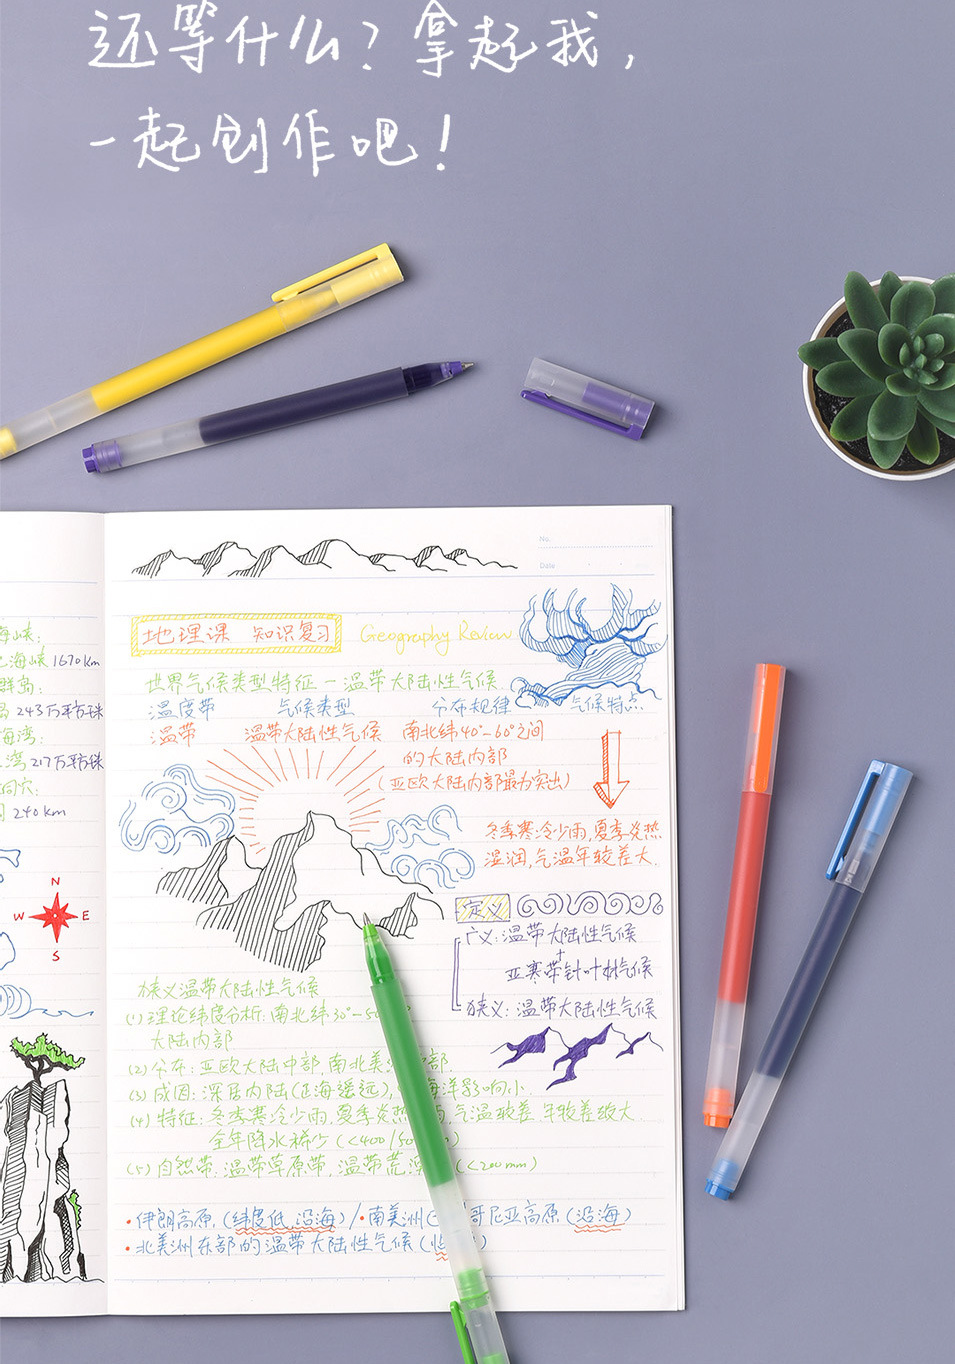 还等什么？拿起我，
一起创作吧！
No.
Date
地理课 知识复习 Geography Review
世界气候类型特征－温带大陆性气候
温度带 气候类型 分布规律 气候特点
温带 温带大陆性气候 南北纬40°-60°之间
的大陆内部
（亚欧大陆内部最为突出）
冬季寒冷少雨,夏季炎热
湿润,气温年较差大.
定义
广义:温带大陆性气候
+
亚寒带针叶林气候
狭义:温带大陆性气候
狭义温带大陆性气候
(1)理论纬度分析:南北纬30°-
大陆内部
(2)分布:亚欧大陆中部,南北美 部.
(3)成因:深居内陆(距海遥远), 海洋影响小.
(4)特征:冬季寒冷少雨,夏季炎热 雨,气温较差.年较差较大.
全年降水稀少(<400/50 )
(5)自然带:温带草原带,温带荒漠 (<200mm)
·伊朗高原,(纬度低,沿海)/·南美洲 哥尼亚高原(沿海)
·北美洲东部的温带大陆性气候( )
海峡:
海峡1670km
群岛:
243万平方km
海湾:
湾217万平方km
洞穴:
240km
N
W E
S